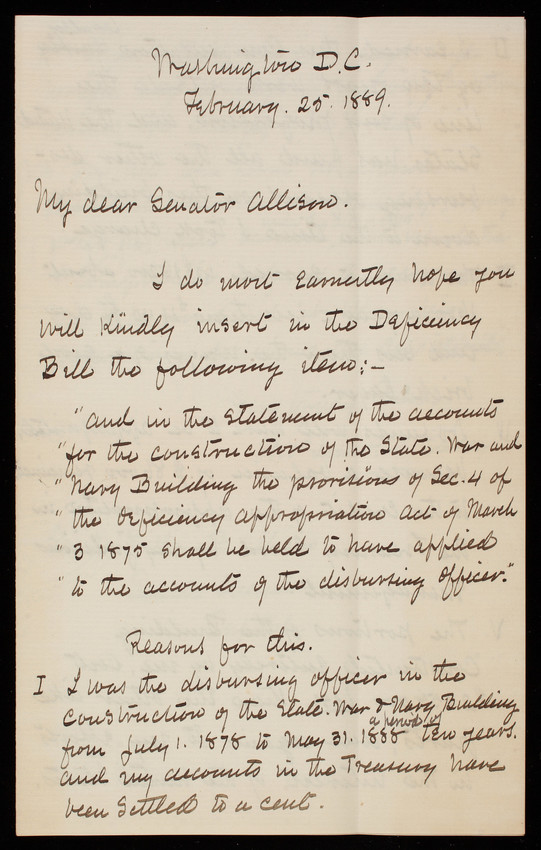 Washington D.C.
February. 25. 1889.
My dear Senator Allison.
I do most earnestly hope you
will kindly insert in the Deficiency
Bill the following item:—
"and in the statement of the accounts
"for the construction of the State. War and
"Navy Building the provisions of Sec. 4 of
"the deficiency appropriation act of March
"3 1875 shall be held to have applied
"to the accounts of the disbursing officer."
Reasons for this.
I I was the disbursing officer in the
construction of the State. War & Navy Building
a period of
from July 1. 1878 to May 31. 1888 ten years.
and my accounts in the Treasury have
been settled to a cent.